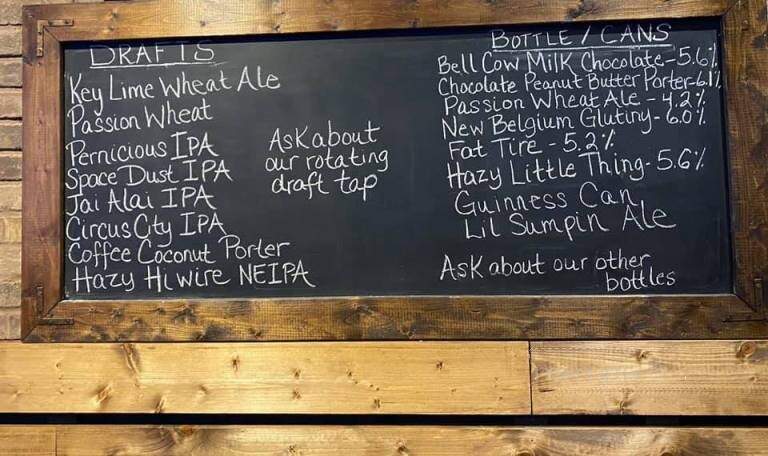 DRAFTS
Key Lime Wheat Ale
Passion Wheat
Pernicious IPA
Space Dust IPA
Jai Alai IPA
Circus City IPA
Coffee Coconut Porter
Hazy Hiwire NEIPA
Ask about
our rotating
draft tap
BOTTLE / CANS
Bell Cow Milk Chocolate-5.6%
Chocolate Peanut Butter Porter-6.1%
Passion Wheat Ale - 4.2%
New Belgium Glutiny- 6.0%
Fat Tire - 5.2%
Hazy Little Thing- 5.6%
Guinness Can
Lil Sumpin Ale
Ask about our other
bottles